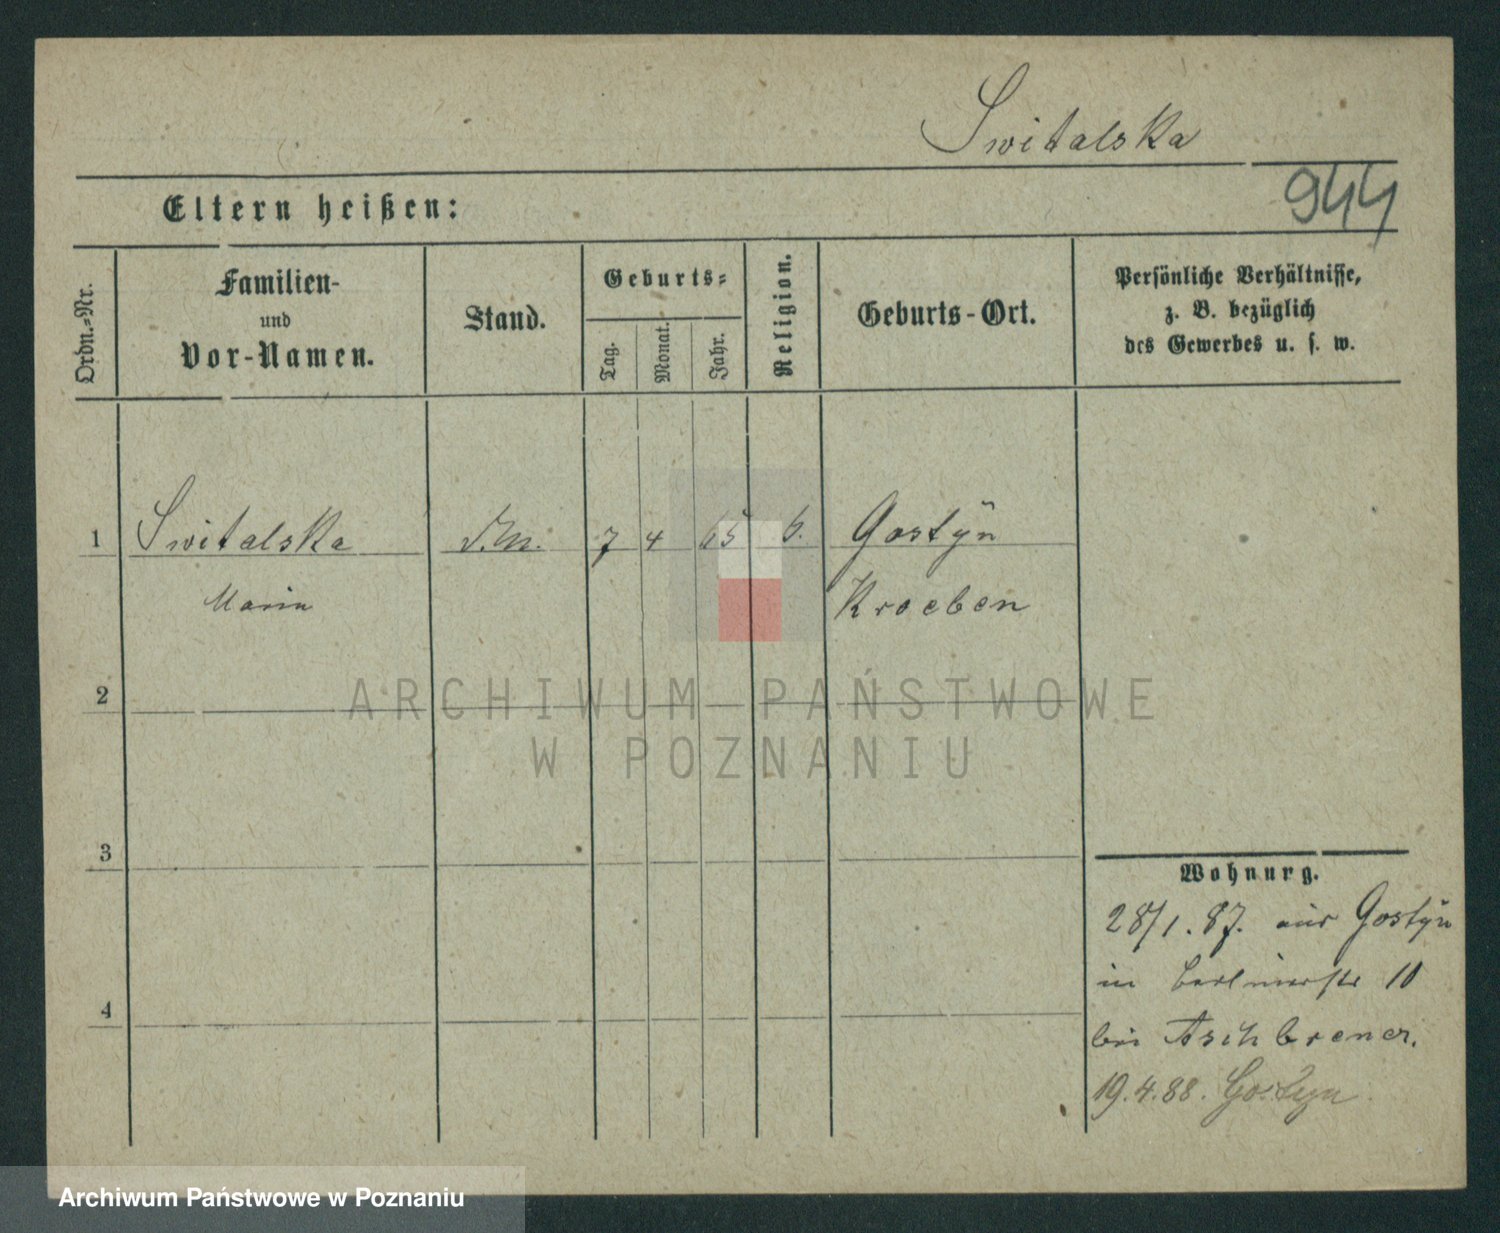 Switalska
944
Eltern heißen:
Ordn.-Nr.
Familien-
und
Vor-Namen.
Stand.
Geburts-
Tag.
Monat.
Jahr.
Religion.
Geburts-Ort.
Persönliche Verhältnisse,
z. B. bezüglich
des Gewerbes u. s. w.
1 Switalska D.M. 7 4 65 Gostÿn
Maria Kroeben
2
ARCHIWUM PAŃSTWOWE
W POZNANIU
3
Wohnung.
28/1. 87. aus Gostÿn
in Berlinerstr 10
4
bei Aschbrener.
19.4.88. Gostyn
Archiwum Państwowe w Poznaniu